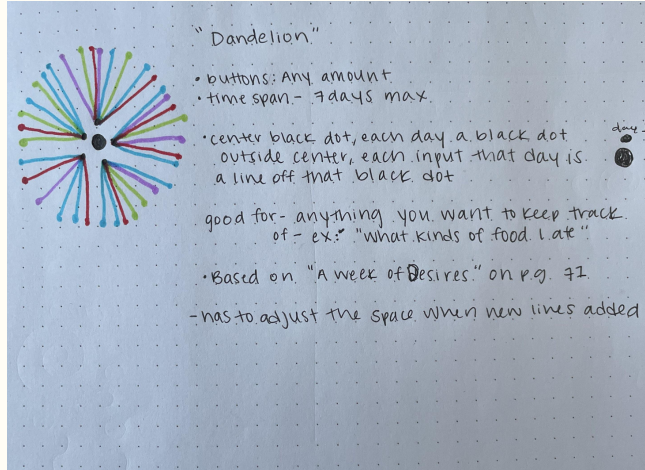 "Dandelion"
• buttons: Any amount
• time span - 7 days max.
• center black dot, each day a black dot
outside center, each input that day is
a line off that black dot
day -
good for - anything you want to keep track
of - ex: "what kinds of food I ate"
• Based on "A week of Desires" on pg. 71
- has to adjust the space when new lines added